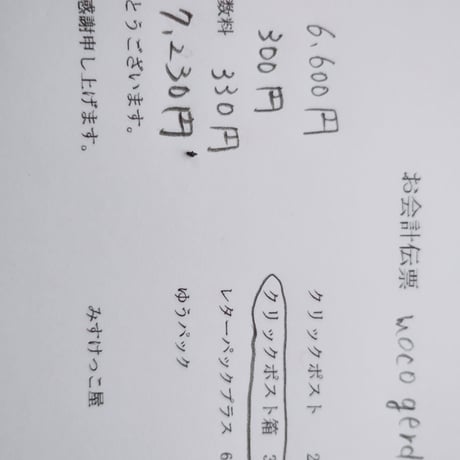 お会計伝票 moco gerd
6,600円 クリックポスト 2
300円 クリックポスト箱 3
数料 330円 レターパックプラス 6
7,230円 ゆうパック
とうございます。
感謝申し上げます。 みすけっこ屋